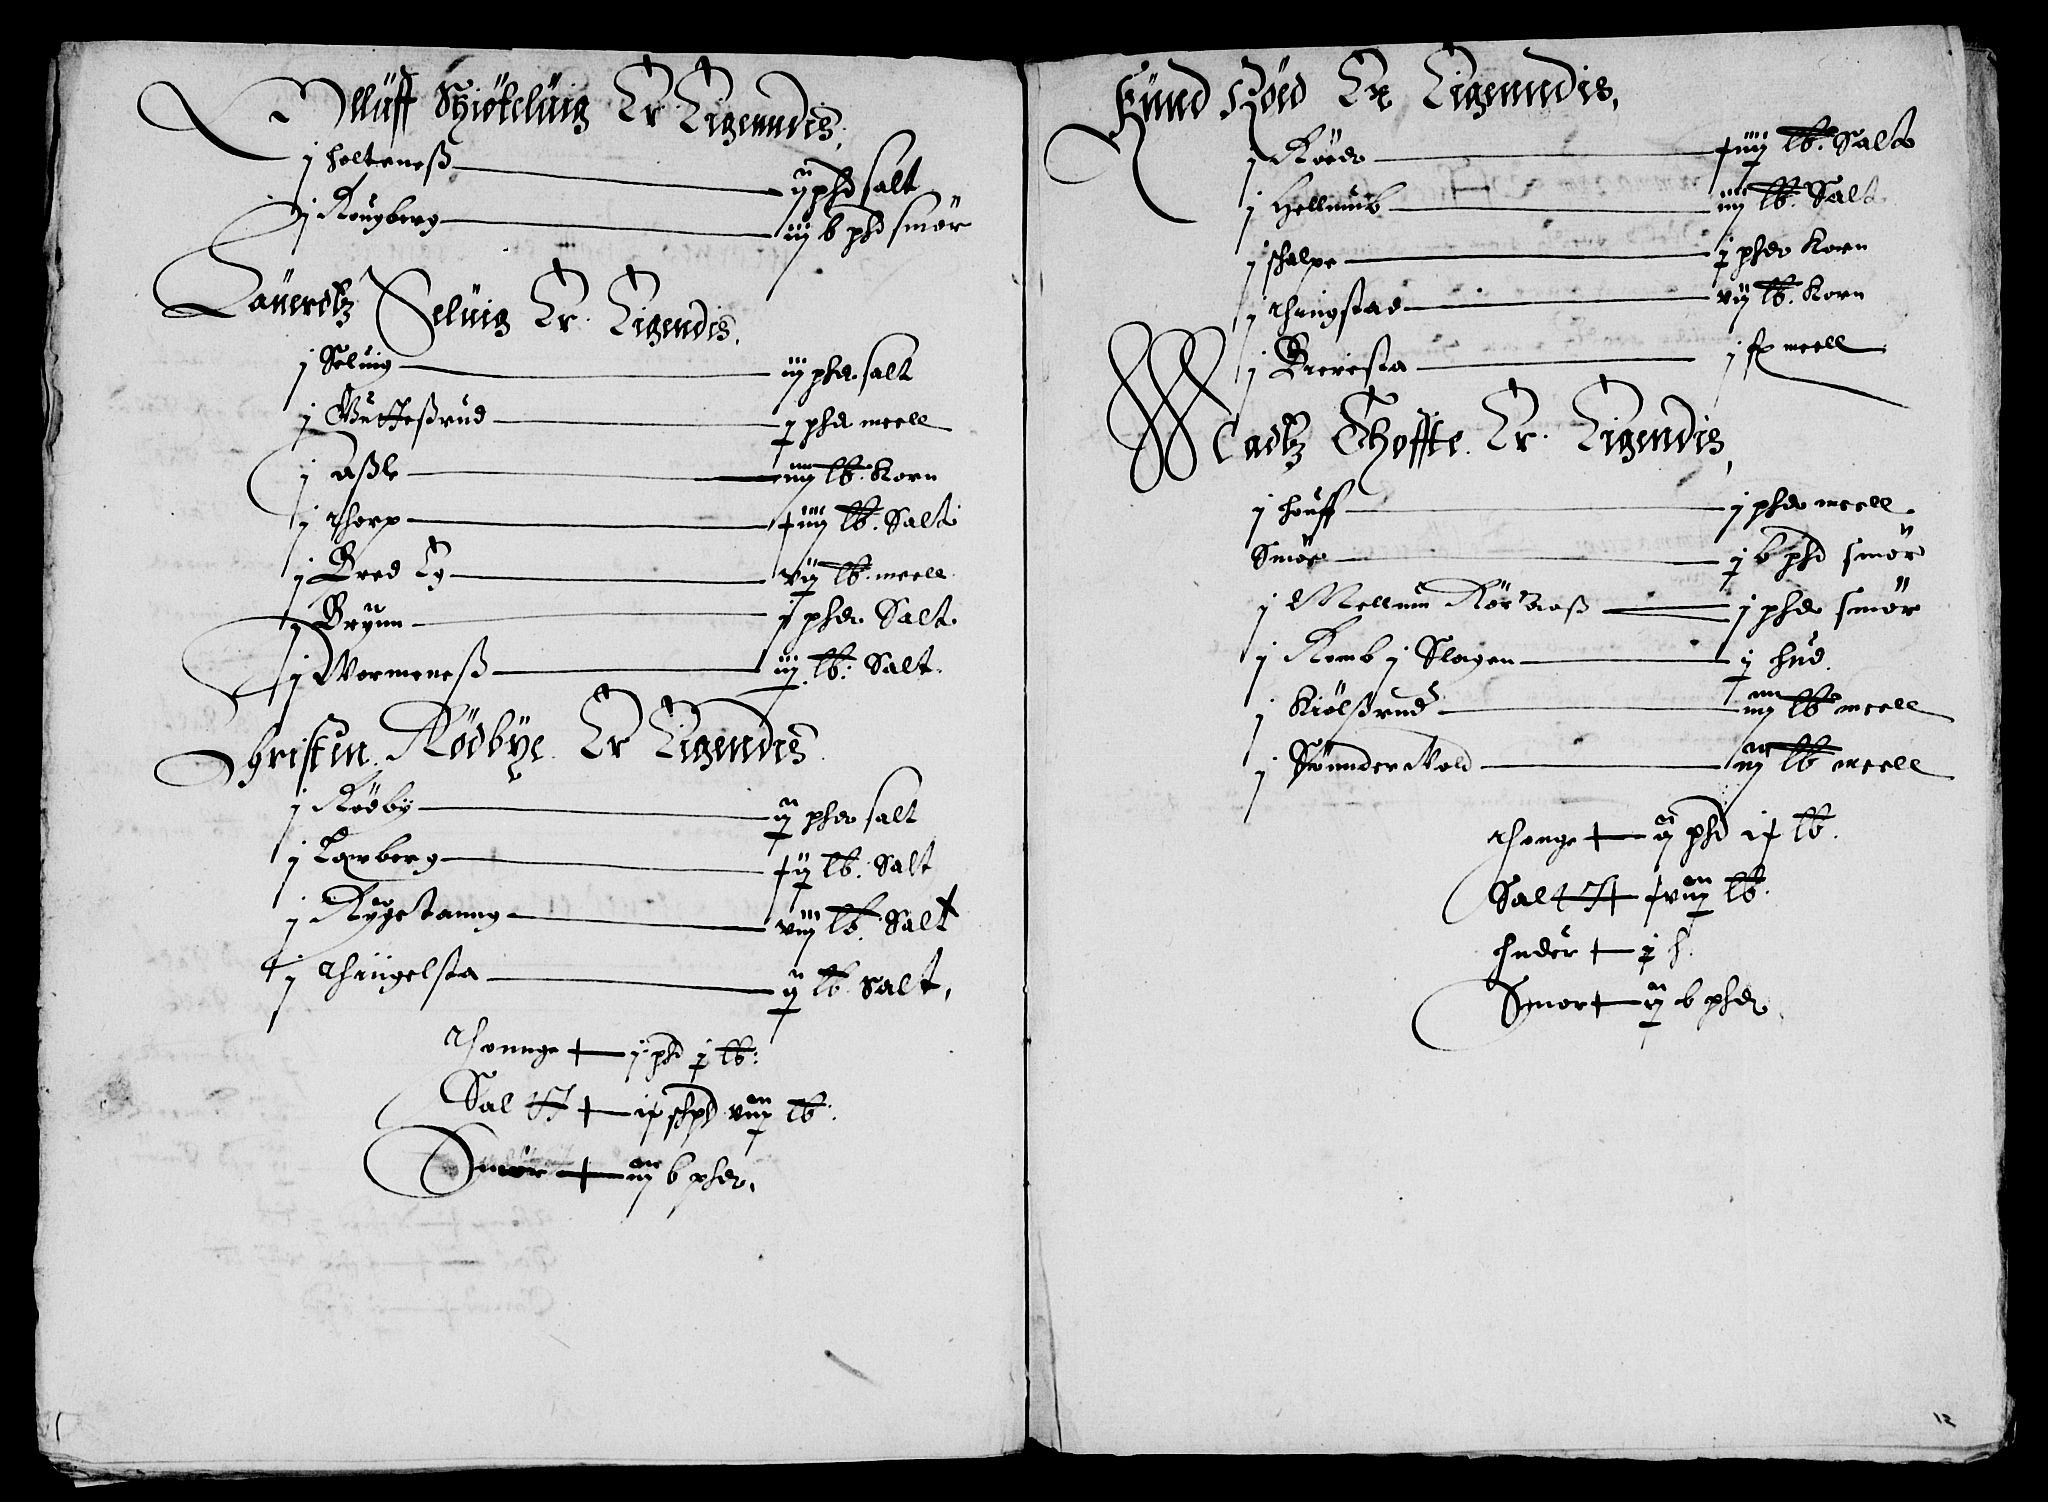 Olluff Skiøteluig Er Eigenndis,
j holteneß — ij phd salt
j Rougberg — iij b phd smör
Lauerdtz Seluig Er Eigendis.
j Seluig — iij phd salt
j Gutteßrud — j phd meell
j Aßle — iiij lb. Korn
j Thorp — xiiij lb. Salt
j Bred Ey — vij lb. meell
j Brynn — j phd Salt
j Wormeneß — iij lb. Salt
Christen Rödbye Er Eigendis
j Rödby — ij phd salt
j Lauberg — xij lb. Salt
j Rygetanng — viij lb. Salt
j Thingelsta — ij lb. Salt,
Thonnge — j phd j lb:
Salt — ix schpd viij lb:
Smör — iij b phd,
Gund Röed Er Eigenndis,
j Röed — xiiij lb. Salt
j Hellumb — iiij lb. Salt
j schalpe — j phd Korn
j Thingstad — vij lb. Korn
j Bierresta — j fr meell
Madtz Thoffte Er Eigendis,
j houff — j phd meell
Smör — j b phd smör
j Mellum Rör — j phd smör
j Romb j Slagen — j hud
j Kiölßrud — iiij lb meell
j Sönnder Wold — iij lb meell
Thonge — ij phd ix lb.
Salt — xviij lb.
huder — j h.
Smor — ij b phd
12